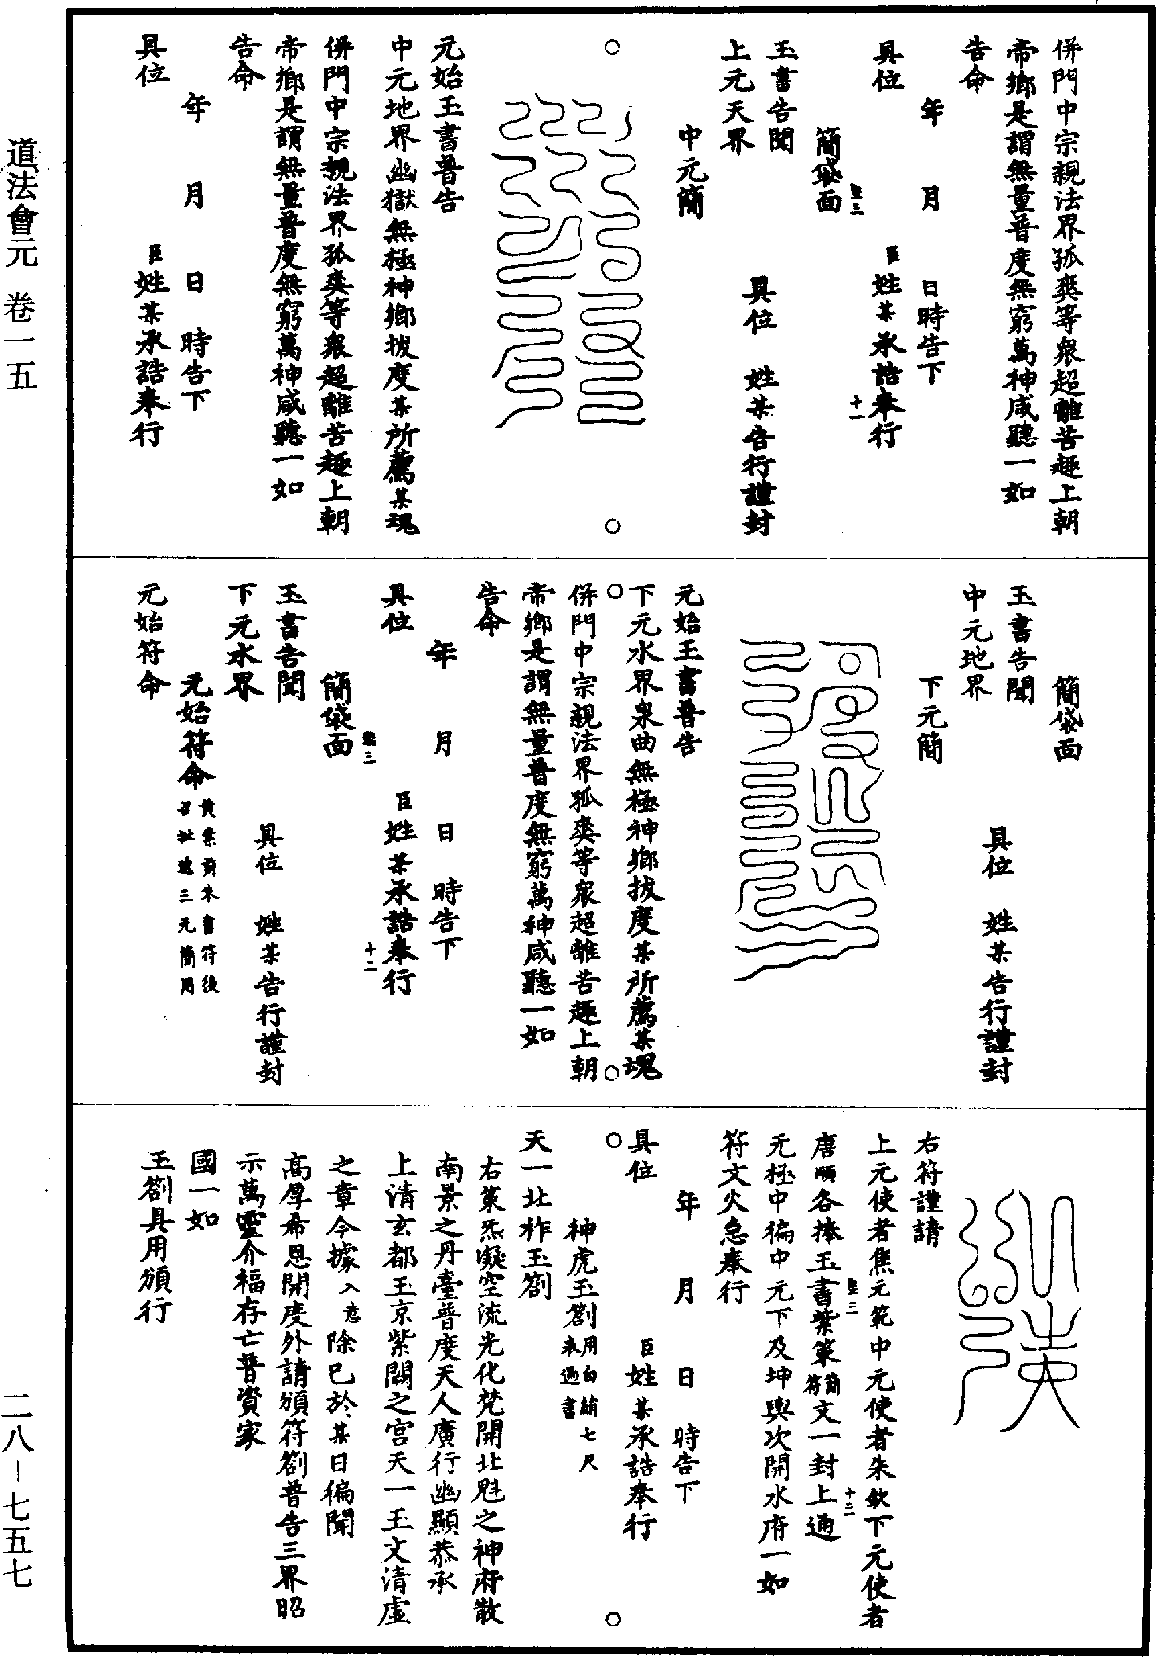 併門中宗親法界孤爽等衆超離苦趣上朝
帝鄉是謂無量普度無窮萬神咸聽一如
告命
年　月　日時告下
具位　臣姓某承誥奉行
簡袋面
玉書告聞
上元天界
具位　姓某告行謹封
中元簡
元始玉書普告
中元地界幽獄無極神鄉拔度某所薦某魂
併門中宗親法界孤爽等衆超離苦趣上朝
帝鄉是謂無量普度無窮萬神咸聽一如
告命
年　月　日　時告下
具位　臣姓某承誥奉行
簡袋面
玉書告聞
中元地界
具位　姓某告行謹封
下元簡
元始玉書普告
下元水界泉曲無極神鄉拔度某所薦某魂
併門中宗親法界孤爽等衆超離苦趣上朝
帝鄉是謂無量普度無窮萬神咸聽一如
告命
年　月　日　時告下
具位　臣姓某承誥奉行
簡袋面
玉書告聞
下元水界
具位　姓某告行謹封
元始符命
元始符命
右符謹請
上元使者焦元範中元使者朱欽下元使者
唐順各捧玉書紫策簡符文一封上通
元極中徧中元下及坤輿次開水府一如
符文火急奉行
年　月　日　時告下
具位　臣姓某承誥奉行
神虎玉劄用白絹七尺
天一北柞玉劄
右策炁凝空流光化梵開北魁之神府散
南景之丹臺普度天人廣行幽顯恭承
上清玄都玉京紫闕之宮天一玉文清虛
之章今據入意除已於某日徧聞
高厚希恩開度外請頒符劄普告三界昭
示萬靈介福存亡普資家
國一如
玉劄具用頒行
道法會元　卷一五
二八－七五七